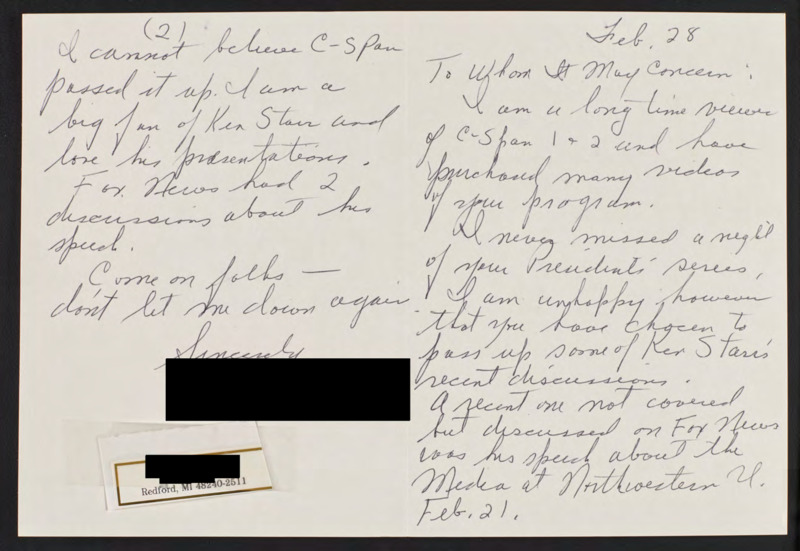 Feb. 28
To Whom It May Concern:
I am a long time viewer
of C-Span 1 & 2 and have
purchased many videos
of your program.
I never missed a night
of your Presidents' series.
I am unhappy however
that you have chosen to
pass up some of Ken Starr's
recent discussions.
A recent one not covered
but discussed on Fox News
was his speech about the
Media at Northwestern U.
Feb. 21.
(2)
I cannot believe C-Span
passed it up. I am a
big fan of Ken Starr and
love his presentations.
Fox News had 2
discussions about his
speech.
Come on folks —
don't let me down again
Sincerely
Redford, MI 48240-2511